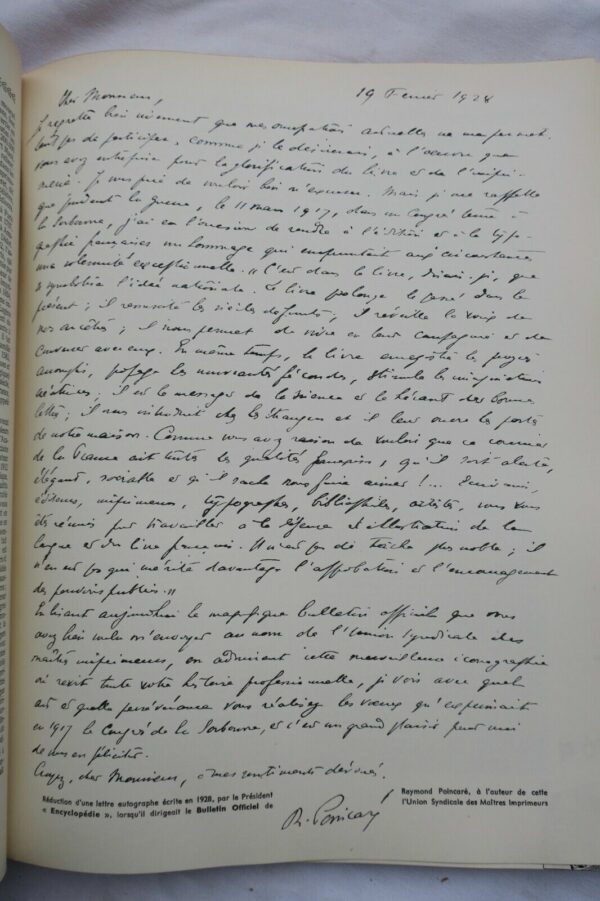 Cher Monsieur, 19 Février 1928
Je regrette bien vivement que mes occupations actuelles ne me permet-
tent pas de participer, comme je le désirerais, à l'oeuvre que
vous avez entreprise pour la glorification du livre et de l'impri-
merie. Je vous prie de vouloir bien m'excuser. Mais je me rappelle
que pendant la guerre, le 11 mars 1917, dans un Congrès tenu à
la Sorbonne, j'ai eu l'occasion de rendre à l'édition et à la typo-
graphie françaises un hommage qui empruntait aux circonstances
une solennité exceptionnelle. « C'est dans le livre, disais-je, que
se symbolise l'idée nationale. Le livre prolonge le passé dans le
présent ; il ressuscite les siècles défunts ; il réveille la voix de
nos ancêtres ; il nous permet de vivre en leur compagnie et de
converser avec eux. En même temps, le livre enregistre les progrès
accomplis, propage les nouveautés fécondes, stimule les imaginations
créatrices ; il est le messager de la science et le héraut des bonnes
lettres ; il nous introduit chez les étrangers et il leur ouvre les portes
de notre maison. Comme vous avez raison de vouloir que ce courrier
de la France ait toutes les qualités françaises, qu'il soit alerte,
élégant, sociable et qu'il sache nous faire aimer !... Écrivains,
éditeurs, imprimeurs, typographes, bibliophiles, artistes, vous vous
êtes réunis pour travailler à la défense et illustration de la
langue et du livre français. Il n'est pas de tâche plus noble ; il
n'en est pas qui mérite davantage l'approbation et l'encouragement
des pouvoirs publics. »
En lisant aujourd'hui le magnifique bulletin officiel que vous
avez bien voulu m'envoyer au nom de l'Union Syndicale des
maîtres imprimeurs, en admirant cette merveilleuse iconographie
où revit toute votre histoire professionnelle, je vois avec quel
art et quelle persévérance vous réalisez les voeux qu'exprimait
en 1917 le Congrès de la Sorbonne, et c'est un grand plaisir pour moi
de vous en féliciter.
Croyez, cher Monsieur, à mes sentiments dévoués.
R. Poincaré
Réduction d'une lettre autographe écrite en 1928, par le Président Raymond Poincaré, à l'auteur de cette
« Encyclopédie », lorsqu'il dirigeait le Bulletin Officiel de l'Union Syndicale des Maîtres Imprimeurs